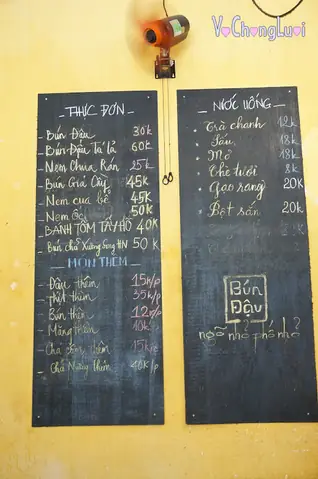 VợChồngLười
THỰC ĐƠN
- Bún Đậu 30k
- Bún Đậu Tá Lả 60k
- Nem Chua Rán 25k
- Bún Giả Cầy 45k
- Nem cua bể 45k
- Nem 50k
- BÁNH TÔM TÂY HỒ 40K
- Bún chả HN 50K
MÓN THÊM
- Đậu thêm 15k/p
- Thịt thêm 35k/p
- Bún thêm 12k/p
- Măng thêm 10k
- Chả cốm thêm 15k
- Chả Nướng thêm 40k/p
NƯỚC UỐNG
- Trà chanh 12k
- Sấu 18k
- Mơ 18k
- Chè tươi 8k
- Gạo rang 20K
- Bột sắn 20k
Bún
Đậu
ngõ nhỏ phố nhỏ